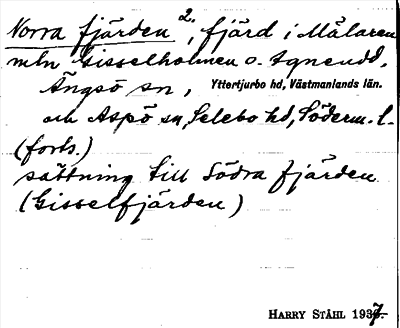 Norra fjärden 2., fjärd i Mälaren
mln Gisselholmen o. Agneudd,
Ängsö sn, Yttertjurbo hd, Västmanlands län.
och Aspö sn, Selebo hd, Söderm. l.
(forts.)
sättning till Södra fjärden
(Gisselfjärden)
HARRY STÅHL 1937